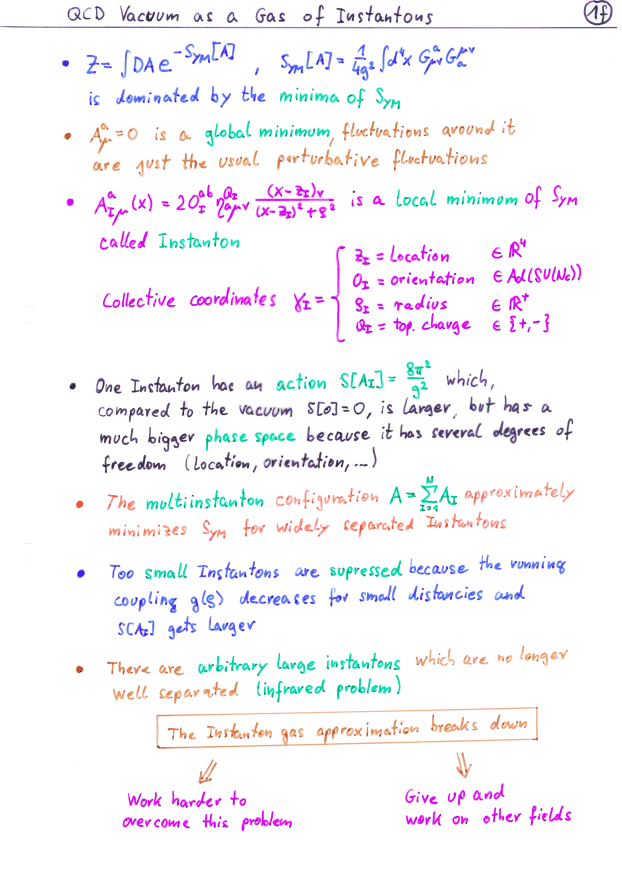 QCD Vacuum as a Gas of Instantons
1f
• Z = ∫DA e^{-S_YM[A]} , S_YM[A] = 1/4g² ∫d⁴x G^a_μν G_a^μν
is dominated by the minima of S_YM
• A^a_μ = 0 is a global minimum, fluctuations around it
are just the usual perturbative fluctuations
• A^a_Iμ(x) = 2O_I^{ab} η^{Q_I}_{aμν} (x-z_I)_ν / ((x-z_I)² + ρ²) is a local minimum of S_YM
called Instanton
Collective coordinates γ_I = {
z_I = location ∈ ℝ⁴
O_I = orientation ∈ Ad(SU(Nc))
ρ_I = radius ∈ ℝ⁺
Q_I = top. charge ∈ {+,-}
• One Instanton has an action S[A_I] = 8π²/g² which,
compared to the vacuum S[0]=0, is larger, but has a
much bigger phase space because it has several degrees of
freedom (Location, orientation, ...)
• The multiinstanton configuration A = Σ_{I=1}^N A_I approximately
minimizes S_YM for widely separated Instantons
• Too small Instantons are supressed because the running
coupling g(ρ) decreases for small distancies and
S[A_I] gets larger
• There are arbitrary large instantons which are no longer
well separated (infrared problem)
The Instanton gas approximation breaks down
Work harder to
overcome this problem
Give up and
work on other fields